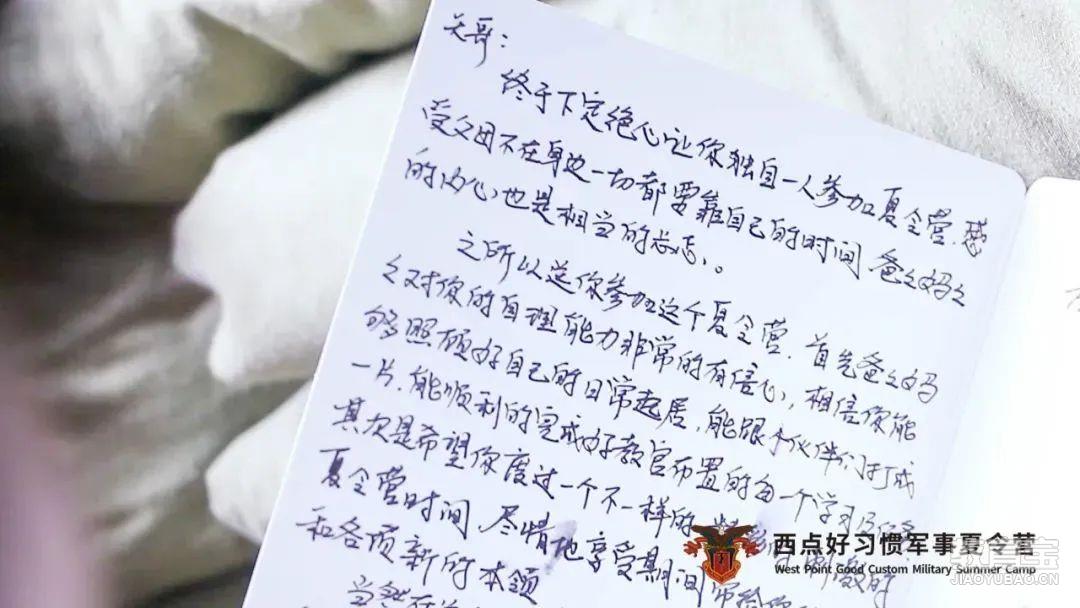 天哥：
终于下定绝心让你独自一人参加夏令营,感
受父母不在身边一切都要靠自己的时间 爸爸妈妈
的内心也是相当的忐忑。
之所以送你参加这个夏令营.首先爸爸妈
妈对你的自理能力非常的有信心,相信你能
够照顾好自己的日常起居,能跟小伙伴们打成
一片.能顺利的完成好教官布置的每一个学习
其次是希望你度过一个不一样的
夏令营时间 尽情地享受期间带给你
和各项新的本领
当然在
西点好习惯军事夏令营
West Point Good Custom Military Summer Camp
教育宝
JIAOYUBAO.CN